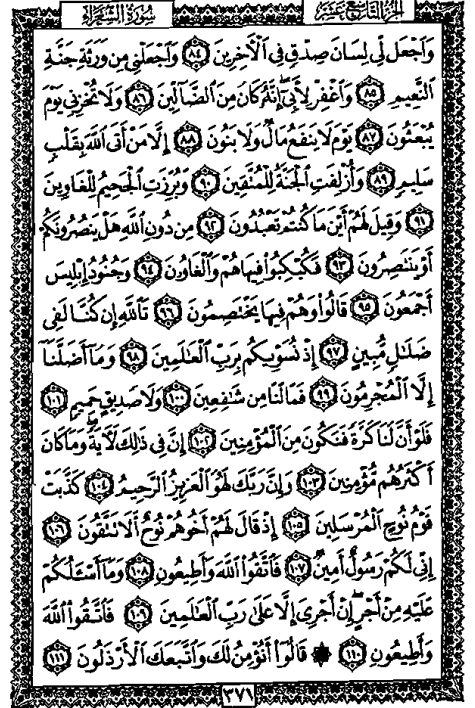 سُورَةُ الشُّعَرَاءِ الجُزْءُ التَّاسِعَ عَشَرَ
وَاجْعَل لِّي لِسَانَ صِدْقٍ فِي الْآخِرِينَ ٨٤ وَاجْعَلْنِي مِن وَرَثَةِ جَنَّةِ
النَّعِيمِ ٨٥ وَاغْفِرْ لِأَبِي إِنَّهُ كَانَ مِنَ الضَّالِّينَ ٨٦ وَلَا تُخْزِنِي يَوْمَ
يُبْعَثُونَ ٨٧ يَوْمَ لَا يَنفَعُ مَالٌ وَلَا بَنُونَ ٨٨ إِلَّا مَنْ أَتَى اللَّهَ بِقَلْبٍ
سَلِيمٍ ٨٩ وَأُزْلِفَتِ الْجَنَّةُ لِلْمُتَّقِينَ ٩٠ وَبُرِّزَتِ الْجَحِيمُ لِلْغَاوِينَ
٩١ وَقِيلَ لَهُمْ أَيْنَ مَا كُنتُمْ تَعْبُدُونَ ٩٢ مِن دُونِ اللَّهِ هَلْ يَنصُرُونَكُمْ
أَوْ يَنتَصِرُونَ ٩٣ فَكُبْكِبُوا فِيهَا هُمْ وَالْغَاوُونَ ٩٤ وَجُنُودُ إِبْلِيسَ
أَجْمَعُونَ ٩٥ قَالُوا وَهُمْ فِيهَا يَخْتَصِمُونَ ٩٦ تَاللَّهِ إِن كُنَّا لَفِي
ضَلَالٍ مُّبِينٍ ٩٧ إِذْ نُسَوِّيكُم بِرَبِّ الْعَالَمِينَ ٩٨ وَمَا أَضَلَّنَا
إِلَّا الْمُجْرِمُونَ ٩٩ فَمَا لَنَا مِن شَافِعِينَ ١٠٠ وَلَا صَدِيقٍ حَمِيمٍ ١٠١
فَلَوْ أَنَّ لَنَا كَرَّةً فَنَكُونَ مِنَ الْمُؤْمِنِينَ ١٠٢ إِنَّ فِي ذَلِكَ لَآيَةً وَمَا كَانَ
أَكْثَرُهُم مُّؤْمِنِينَ ١٠٣ وَإِنَّ رَبَّكَ لَهُوَ الْعَزِيزُ الرَّحِيمُ ١٠٤ كَذَّبَتْ
قَوْمُ نُوحٍ الْمُرْسَلِينَ ١٠٥ إِذْ قَالَ لَهُمْ أَخُوهُمْ نُوحٌ أَلَا تَتَّقُونَ ١٠٦
إِنِّي لَكُمْ رَسُولٌ أَمِينٌ ١٠٧ فَاتَّقُوا اللَّهَ وَأَطِيعُونِ ١٠٨ وَمَا أَسْأَلُكُمْ
عَلَيْهِ مِنْ أَجْرٍ إِنْ أَجْرِيَ إِلَّا عَلَى رَبِّ الْعَالَمِينَ ١٠٩ فَاتَّقُوا اللَّهَ
وَأَطِيعُونِ ١١٠ ۞ قَالُوا أَنُؤْمِنُ لَكَ وَاتَّبَعَكَ الْأَرْذَلُونَ ١١١
٣٧١